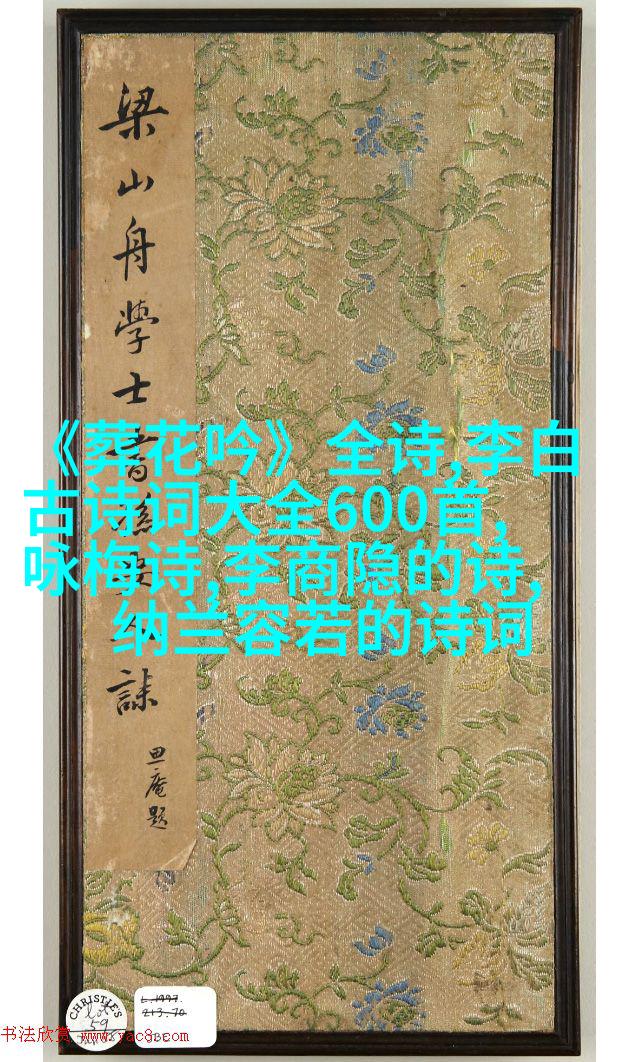 梁山舟學士書孫人誄
庵題
《葬花吟》全诗,李白
古诗词大全600首,
咏梅诗,李商隐的诗,
纳兰容若的诗词
CHRISTIE'S
lot
59
L.1997.
213.70
书法欣赏 www.yac8.com